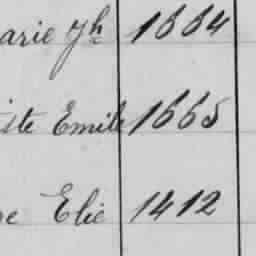 arie Jh 1664
ste Emile 1665
e Elie 1412